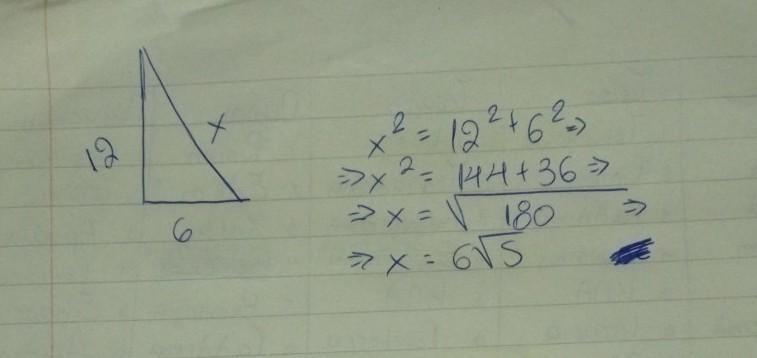 12
x
6
x² = 12² + 6² ⇒
⇒ x² = 144 + 36 ⇒
⇒ x = √180 ⇒
⇒ x = 6√5